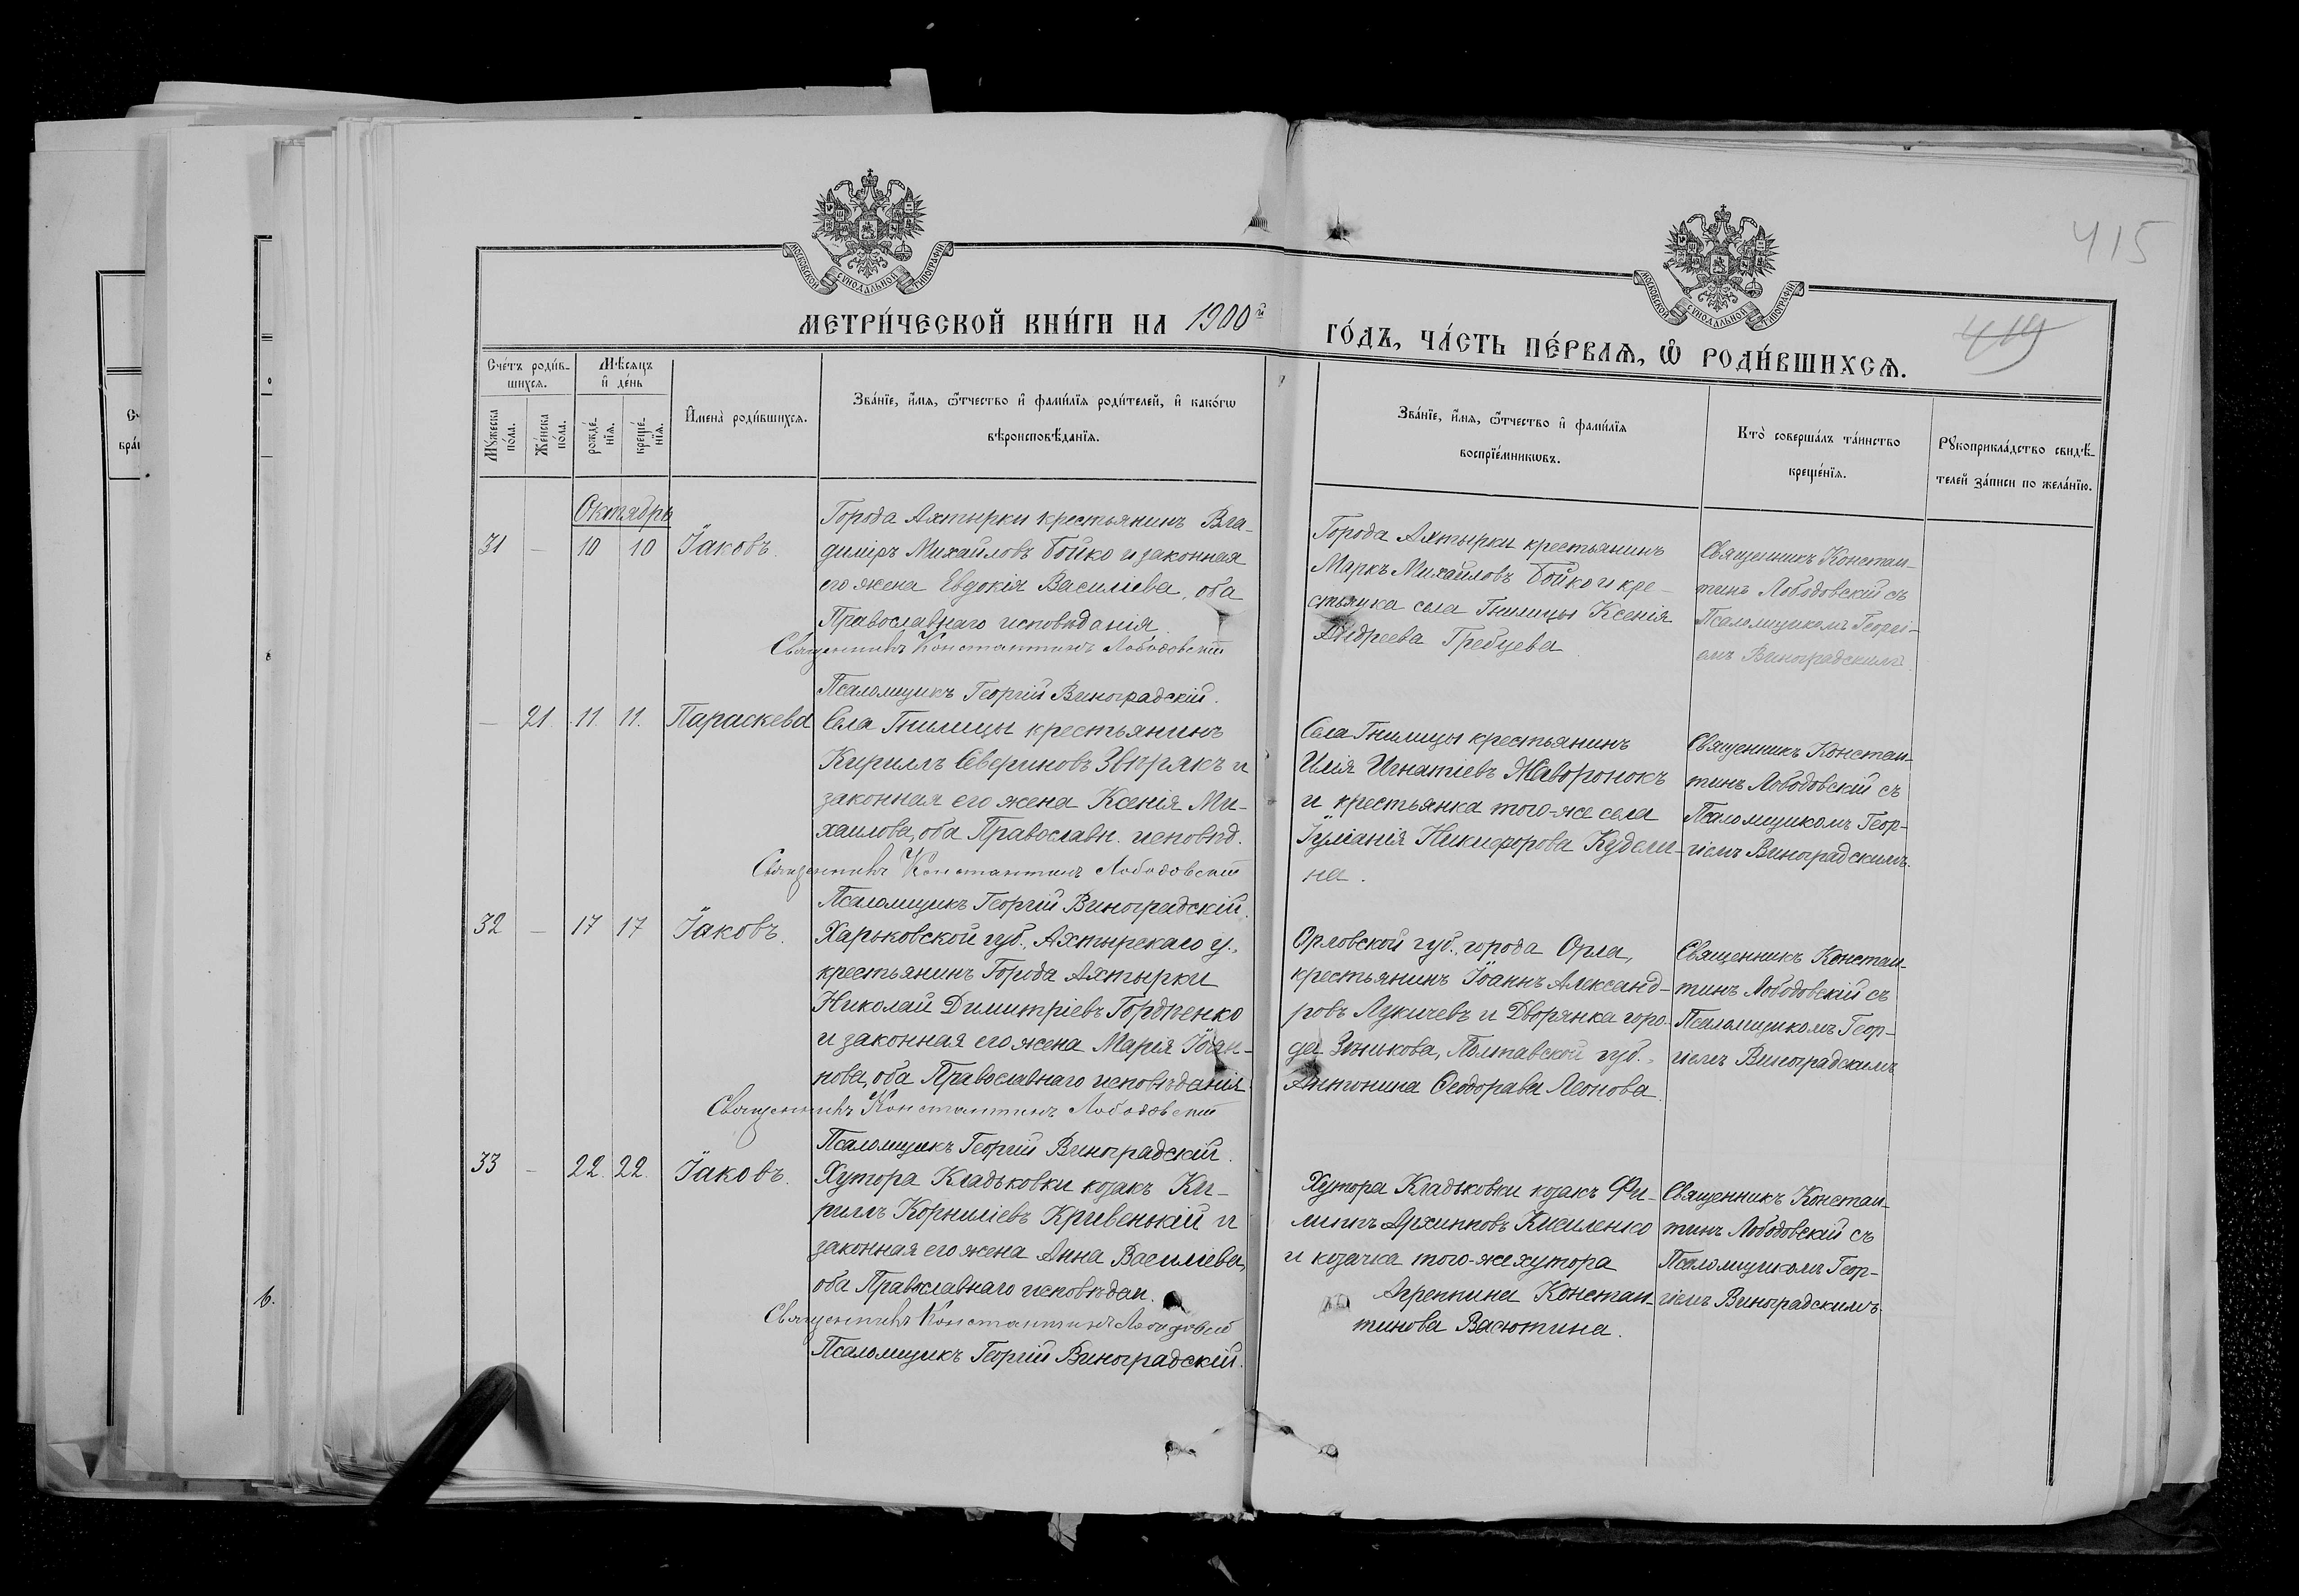 415
419
МОСКОВСКОЙ СѴНОДАЛЬНОЙ ТИПОГРАФІИ
МОСКОВСКОЙ СѴНОДАЛЬНОЙ ТИПОГРАФІИ
МЕТРИ́ЧЕСКОЙ КНИ́ГИ НА 1900й
ГО́ДЪ, ЧА́СТЬ ПЕ́РВАѦ, Ѽ РОДИ́ВШИХСѦ.
Сче́тъ роди́в-
шихся.
Мѣ́сяцъ
и҆ де́нь
Мꙋ́жеска
по́ла.
Же́нска
по́ла.
рожде́-
нїя.
креще́-
нїя.
И҆мена̀ роди́вшихся.
Зва́нїе, и҆́мя, ѻ҆́тчество и҆ фами́лїя роди́телей, и҆ како́гѡ
вѣроисповѣ́данїя.
Зва́нїе, и҆́мя, ѻ҆́тчество и҆ фами́лїя
воспрїе́мникѡвъ.
Кто̀ соверша́лъ та́инство
креще́нїя.
Рꙋкоприкла́дство свидѣ́-
телей за́писи по жела́нїю.
Октябрь
31 — 10 10 Іаковъ.
Города Ахтырки крестьянинъ Вла-
димиръ Михайловъ Бойко и законная
его жена Евдокія Василіева, оба
Православнаго исповѣданія.
Священникъ Константинъ Лободовскій
Псаломщикъ Георгій Виноградскій.
Города Ахтырки крестьянинъ
Маркъ Михайловъ Бойко и кре-
стьянка села Гнилицы Ксенія
Андреева Гребцева
Священникъ Констан-
тинъ Лободовскій съ
Псаломщикомъ Георгі-
емъ Виноградскимъ
— 21. 11. 11. Параскева
Села Гнилицы крестьянинъ
Кириллъ Севериновъ Звѣрякъ и
законная его жена Ксенія Ми-
хаилова, оба Православн. исповѣд.
Священникъ Константинъ Лободовскій
Псаломщикъ Георгій Виноградскій.
Села Гнилицы крестьянинъ
Илія Игнатіевъ Жаворонокъ
и крестьянка того-же села
Іуліанія Никифорова Кудели-
на.
Священникъ Констан-
тинъ Лободовскій съ
Псаломщикомъ Геор-
гіемъ Виноградскимъ.
32 — 17 17 Іаковъ.
Харьковской губ., Ахтырскаго у.,
крестьянинъ Города Ахтырки
Николай Димитріевъ Гордѣенко
и законная его жена Марія Іоан-
нова, оба Православнаго исповѣданія.
Священникъ Константинъ Лободовскій
Псаломщикъ Георгій Виноградскій.
Орловской губ., города Орла,
крестьянинъ Іоаннъ Александ-
ровъ Лукичевъ и Дворянка горо-
да Зѣнькова, Полтавской губ.,
Антонина Ѳеодорава Леонова.
Священникъ Констан-
тинъ Лободовскій съ
Псаломщикомъ Геор-
гіемъ Виноградскимъ
33 — 22. 22. Іаковъ.
Хутора Кладьковки козакъ Ки-
риллъ Корниліевъ Кривенькій и
законная его жена Анна Василіева,
оба Православнаго исповѣдан.
Священникъ Константинъ
Псаломщикъ Георгій Виноградскій.
Хутора Кладьковки козакъ Фи-
липпъ Архипповъ Кисиленко
и козачка того-же хутора
Агреппина Констан-
тинова Васютина.
Священникъ Констан-
тинъ Лободовскій съ
Псаломщикомъ Геор-
гіемъ Виноградскимъ.